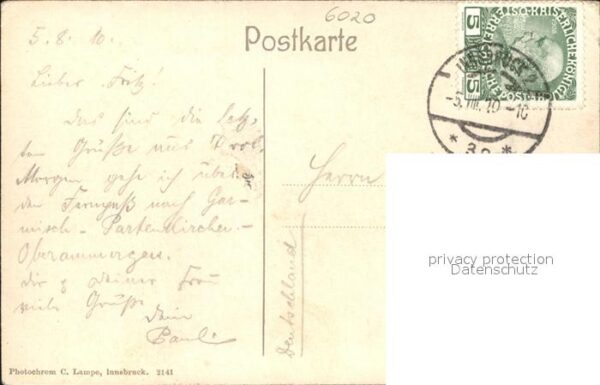 6020
5. 8. 10.
Postkarte
Lieber Fritz!
Das sind die letz-
ten Grüße aus Tirol.
Morgen gehe ich über
den Fernpaß nach Gar-
misch-Partenkirchen-
Oberammergau.
Dir & Deiner Frau
viele Grüße
Dein
Paul.
Herrn
Deutschland
5 5
INNSBRUCK 2
-5.VIII.10-10
* 3 a *
privacy protection
Datenschutz
Photochrom C. Lampe, Innsbruck. 2141